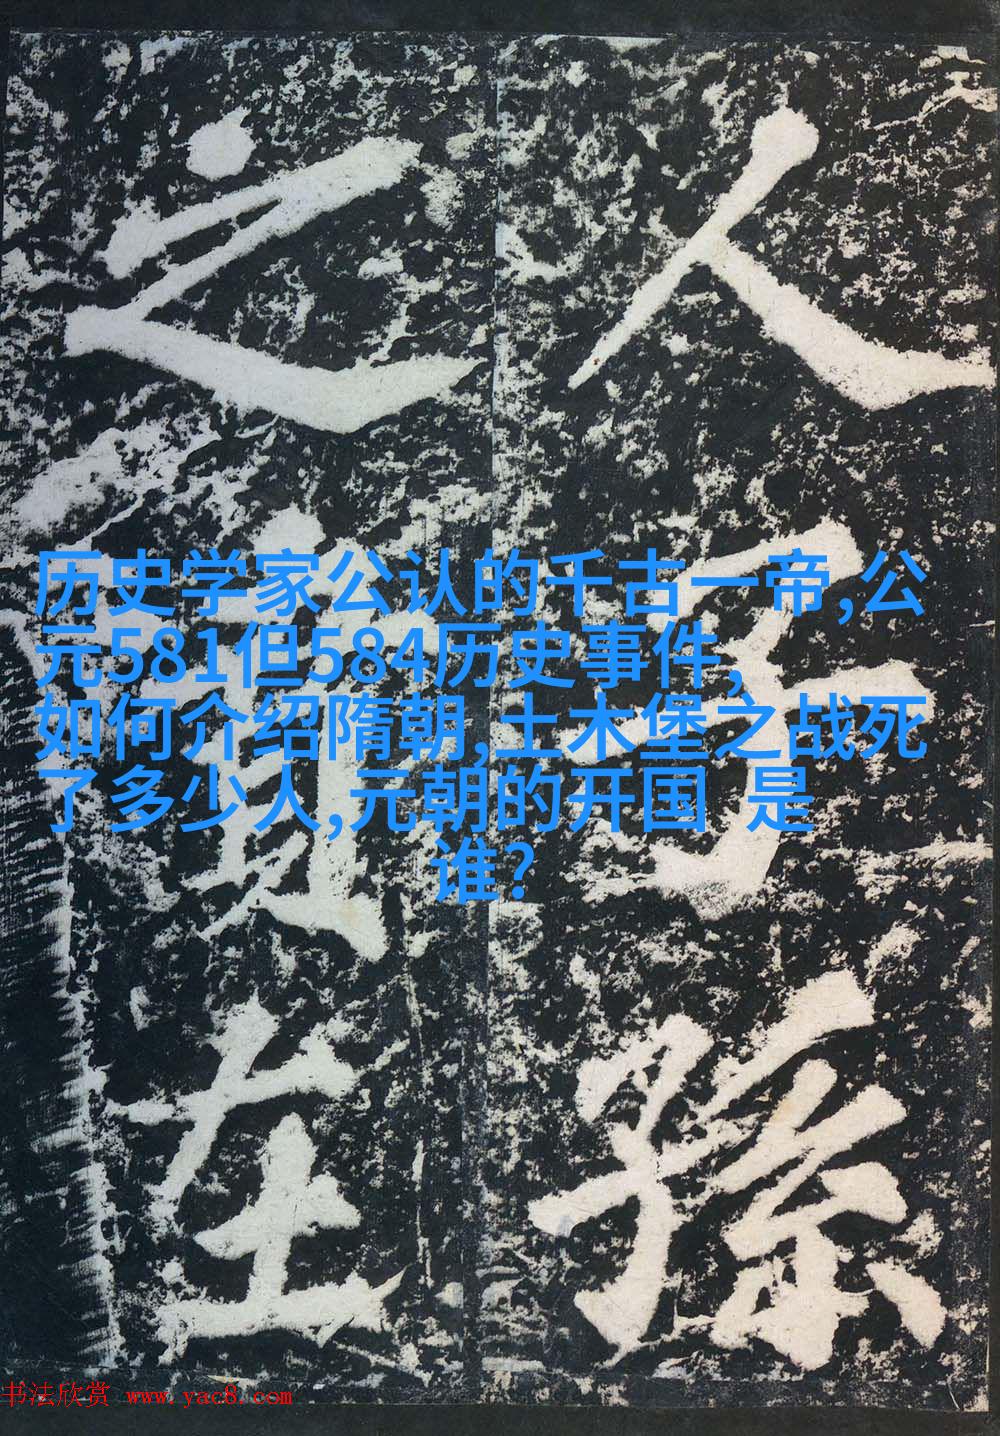 历史学家公认的千古一帝,公
元581但584历史事件,
如何介绍隋朝,土木堡之战死
了多少人,元朝的开国 是
谁?
人
子
孫
之
在
书法欣赏 www.yac8.com